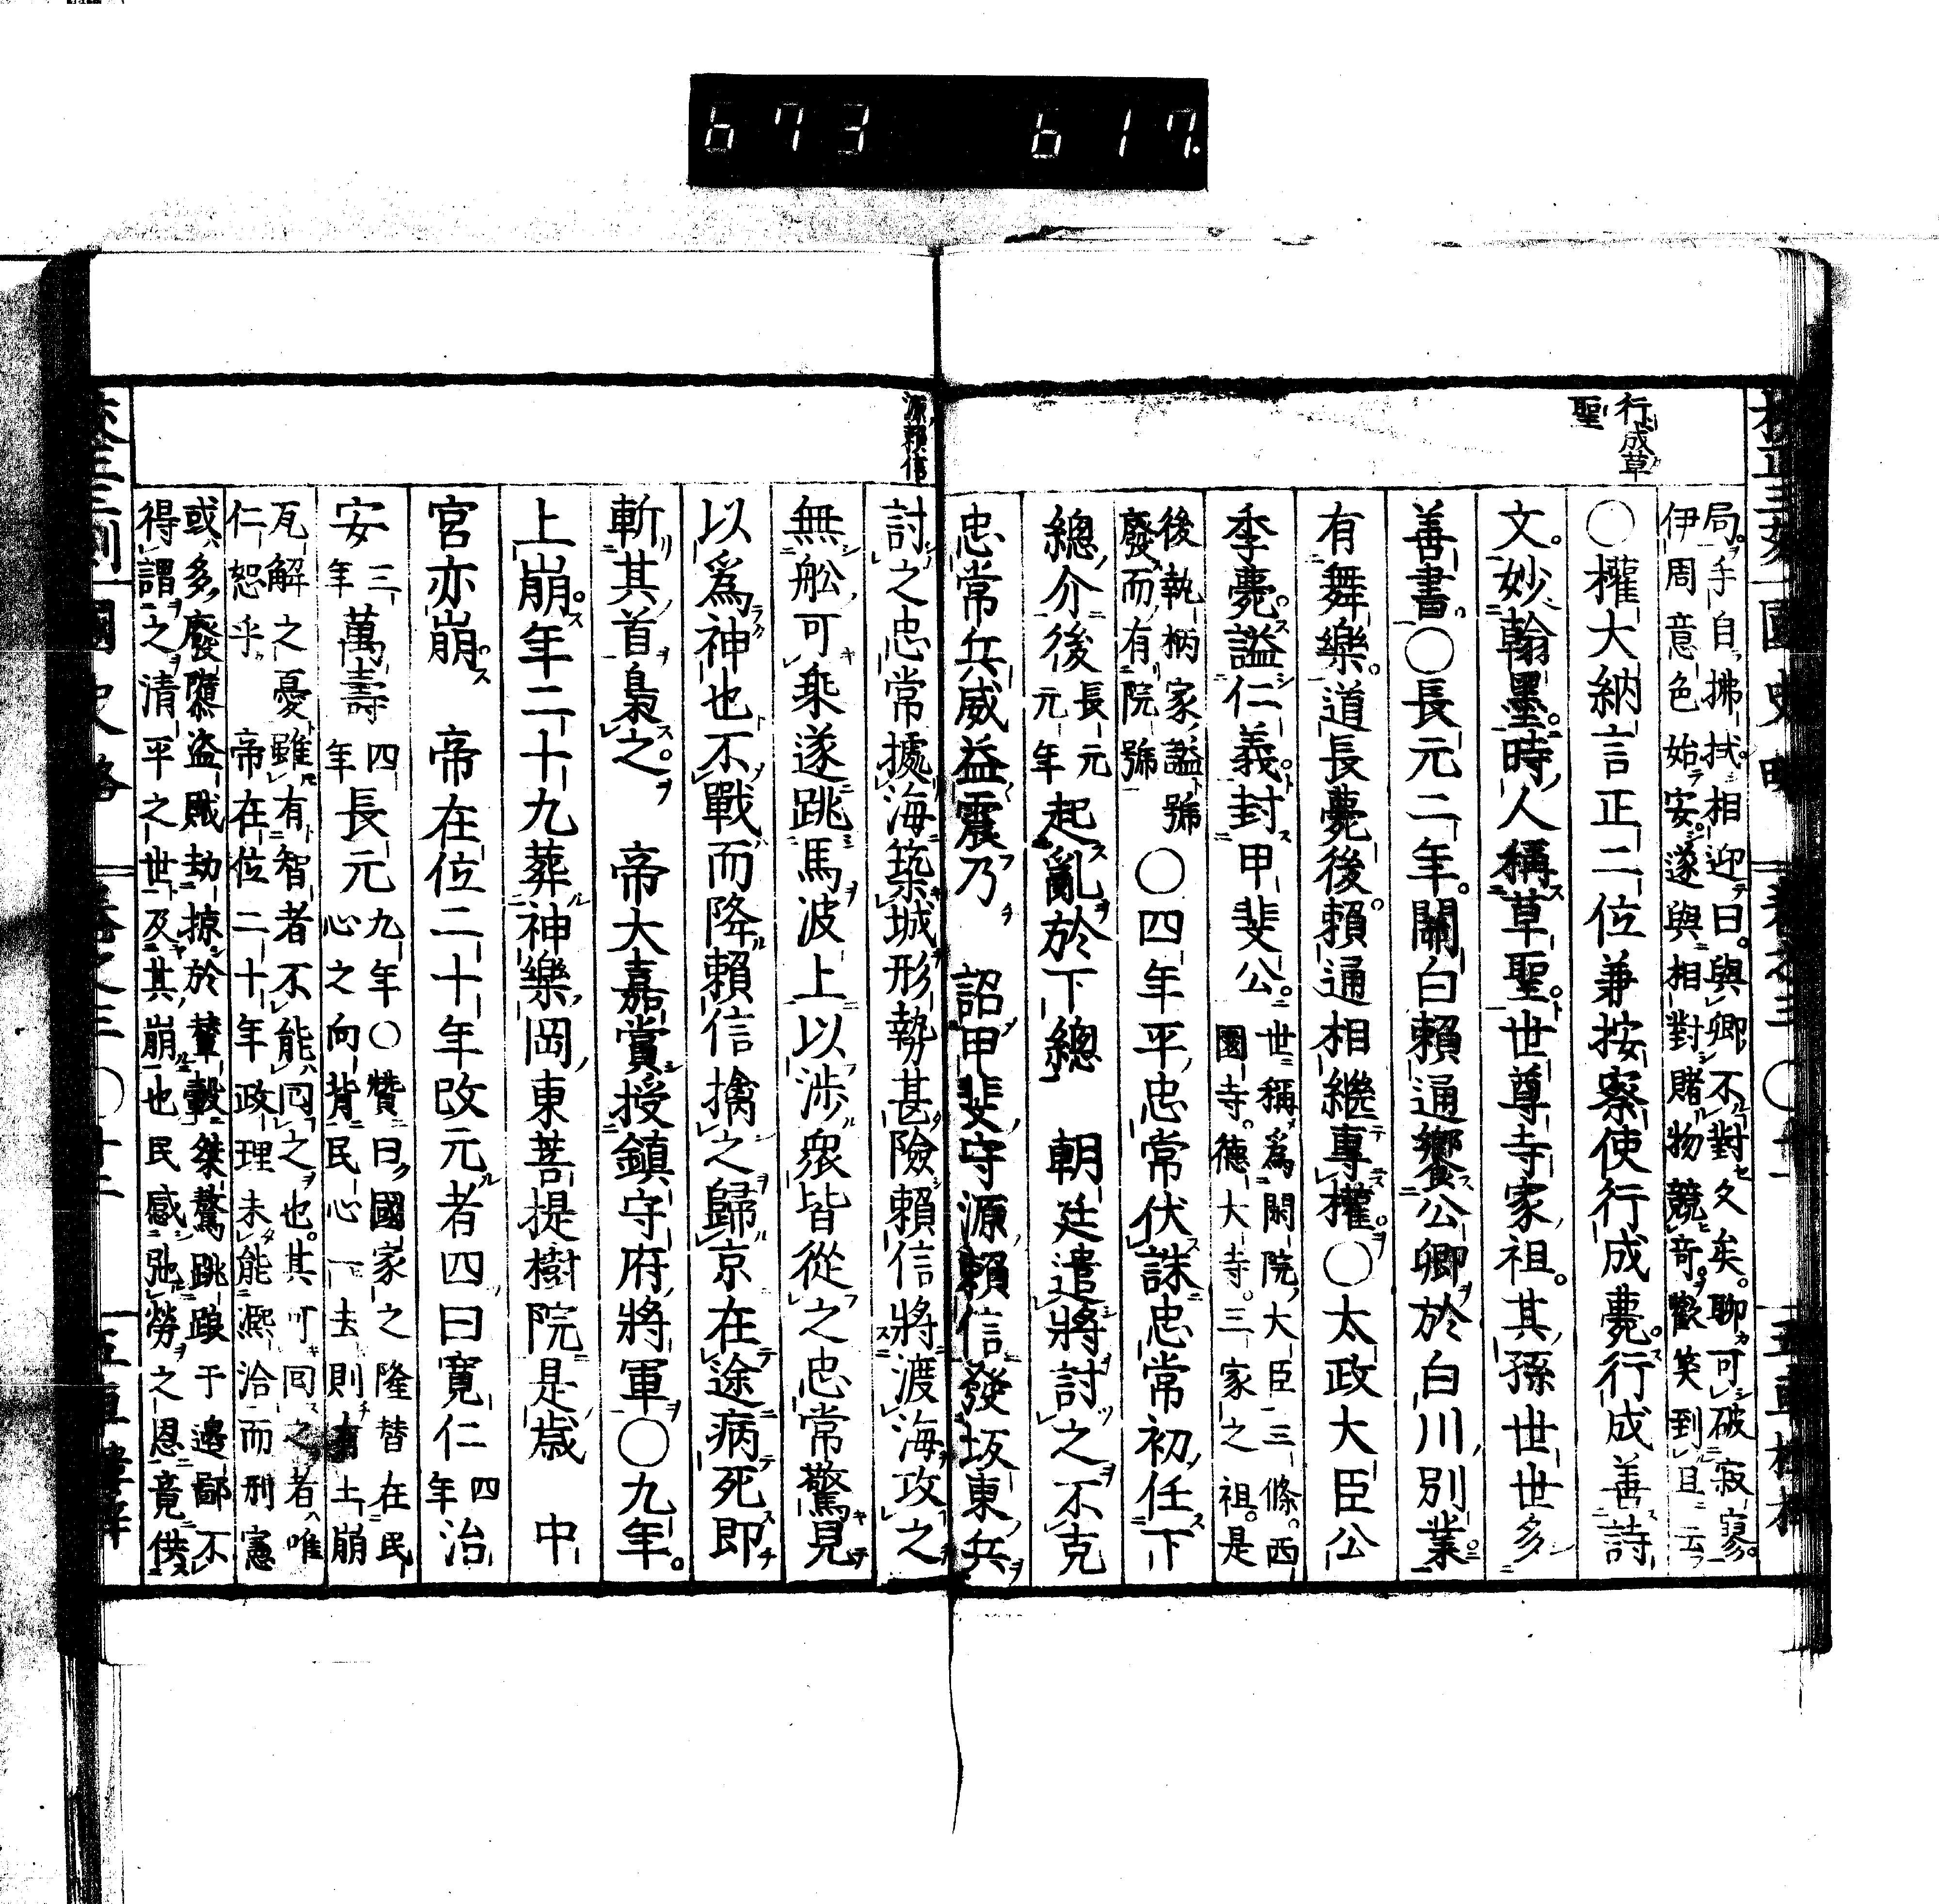 673 617.
行成草
聖
局手自拂拭相迎曰與卿不對久矣聊可破寂寥
伊周意色始安遂與相對賭物競奇歡笑到且云
○權大納言正二位兼按察使行成薨行成善詩
文妙翰墨時人稱草聖世尊寺家祖其孫世世多
善書○長元二年關白賴通饗公卿於白川別業
有舞樂道長薨後賴通相繼專權○太政大臣公
季薨謚仁義封甲斐公世稱爲閑院大臣三條西
園寺德大寺三家之祖是
後執柄家謚號
廢而有院號○四年平忠常伏誅忠常初任下
總介後長元
元年起亂於下總 朝廷遣將討之不克
忠常兵威益震乃 詔甲斐守源賴信發坂東兵
源賴信
討之忠常據海築城形勢甚險賴信將渡海攻之
無舩可乘遂跳馬波上以渉衆皆從之忠常驚見
以爲神也不戰而降賴信擒之歸京在途病死即
斬其首梟之 帝大嘉賞授鎮守府將軍○九年
上崩年二十九葬神樂岡東菩提樹院是歲 中
宮亦崩 帝在位二十年改元者四曰寬仁四
年治
安三
年萬壽四
年長元九年○贊曰國家之隆替在民
心之向背民心一去則有土崩
瓦解之憂雖有智者不能回之也其可回之者唯
仁恕乎 帝在位二十年政理未能凞洽而刑憲
或多廢墮盜賊劫掠於輦轂桀驁跳踉于邊鄙不
得謂之清平之世及其崩也民感弛勞之恩竟供
國史略 卷之三